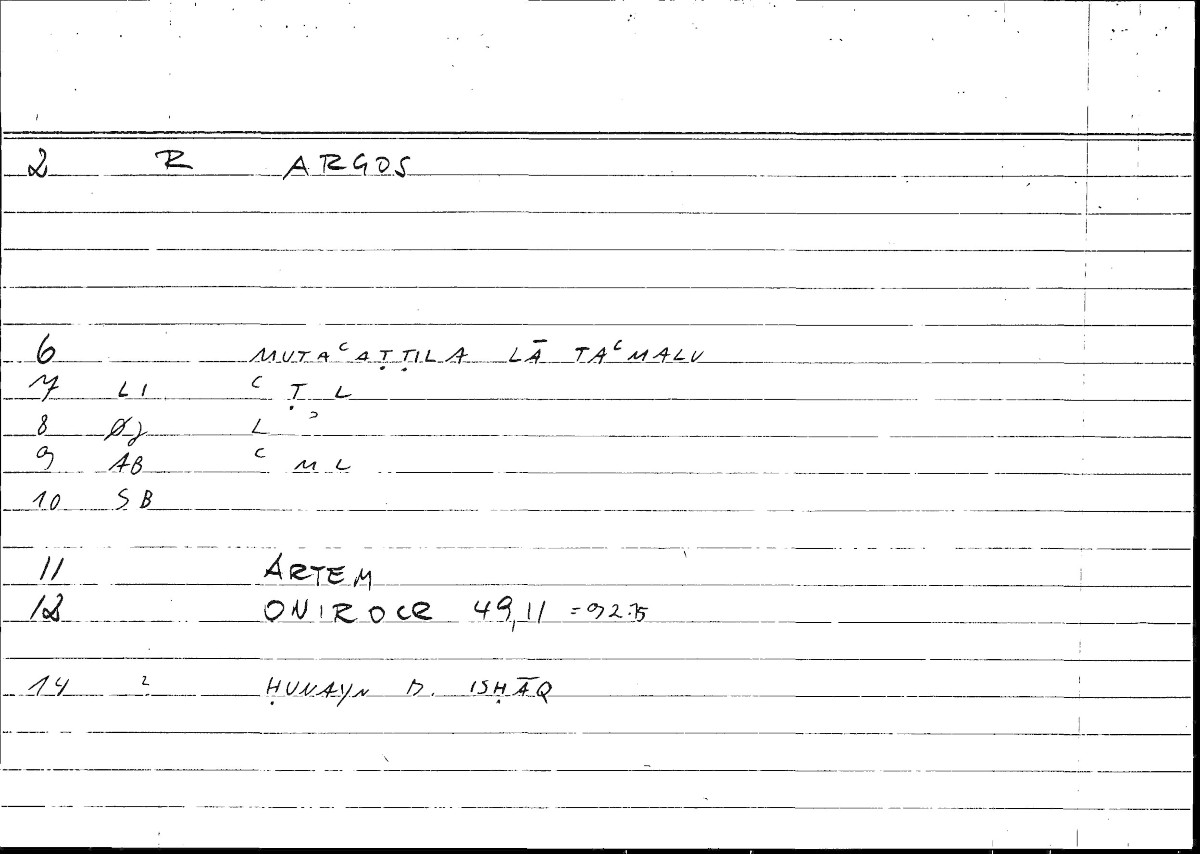 2 R ARGOS
6 MUTAᶜAṬṬILA LĀ TAᶜMALU
7 LI ᶜ Ṭ L
8 Øj L ᵓ
9 AB ᶜ M L
10 SB
11 ARTEM
12 ONIROCR 49,11 = 92.15
14 2 ḤUNAYN B. ISḤĀQ